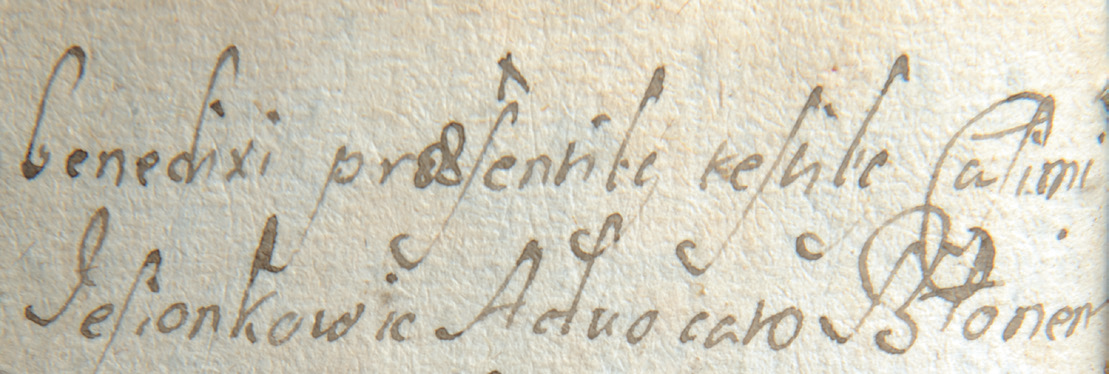 benedixi præsentibꝫ testibꝫ Casimi
Jesionkowic Advocato Błonen